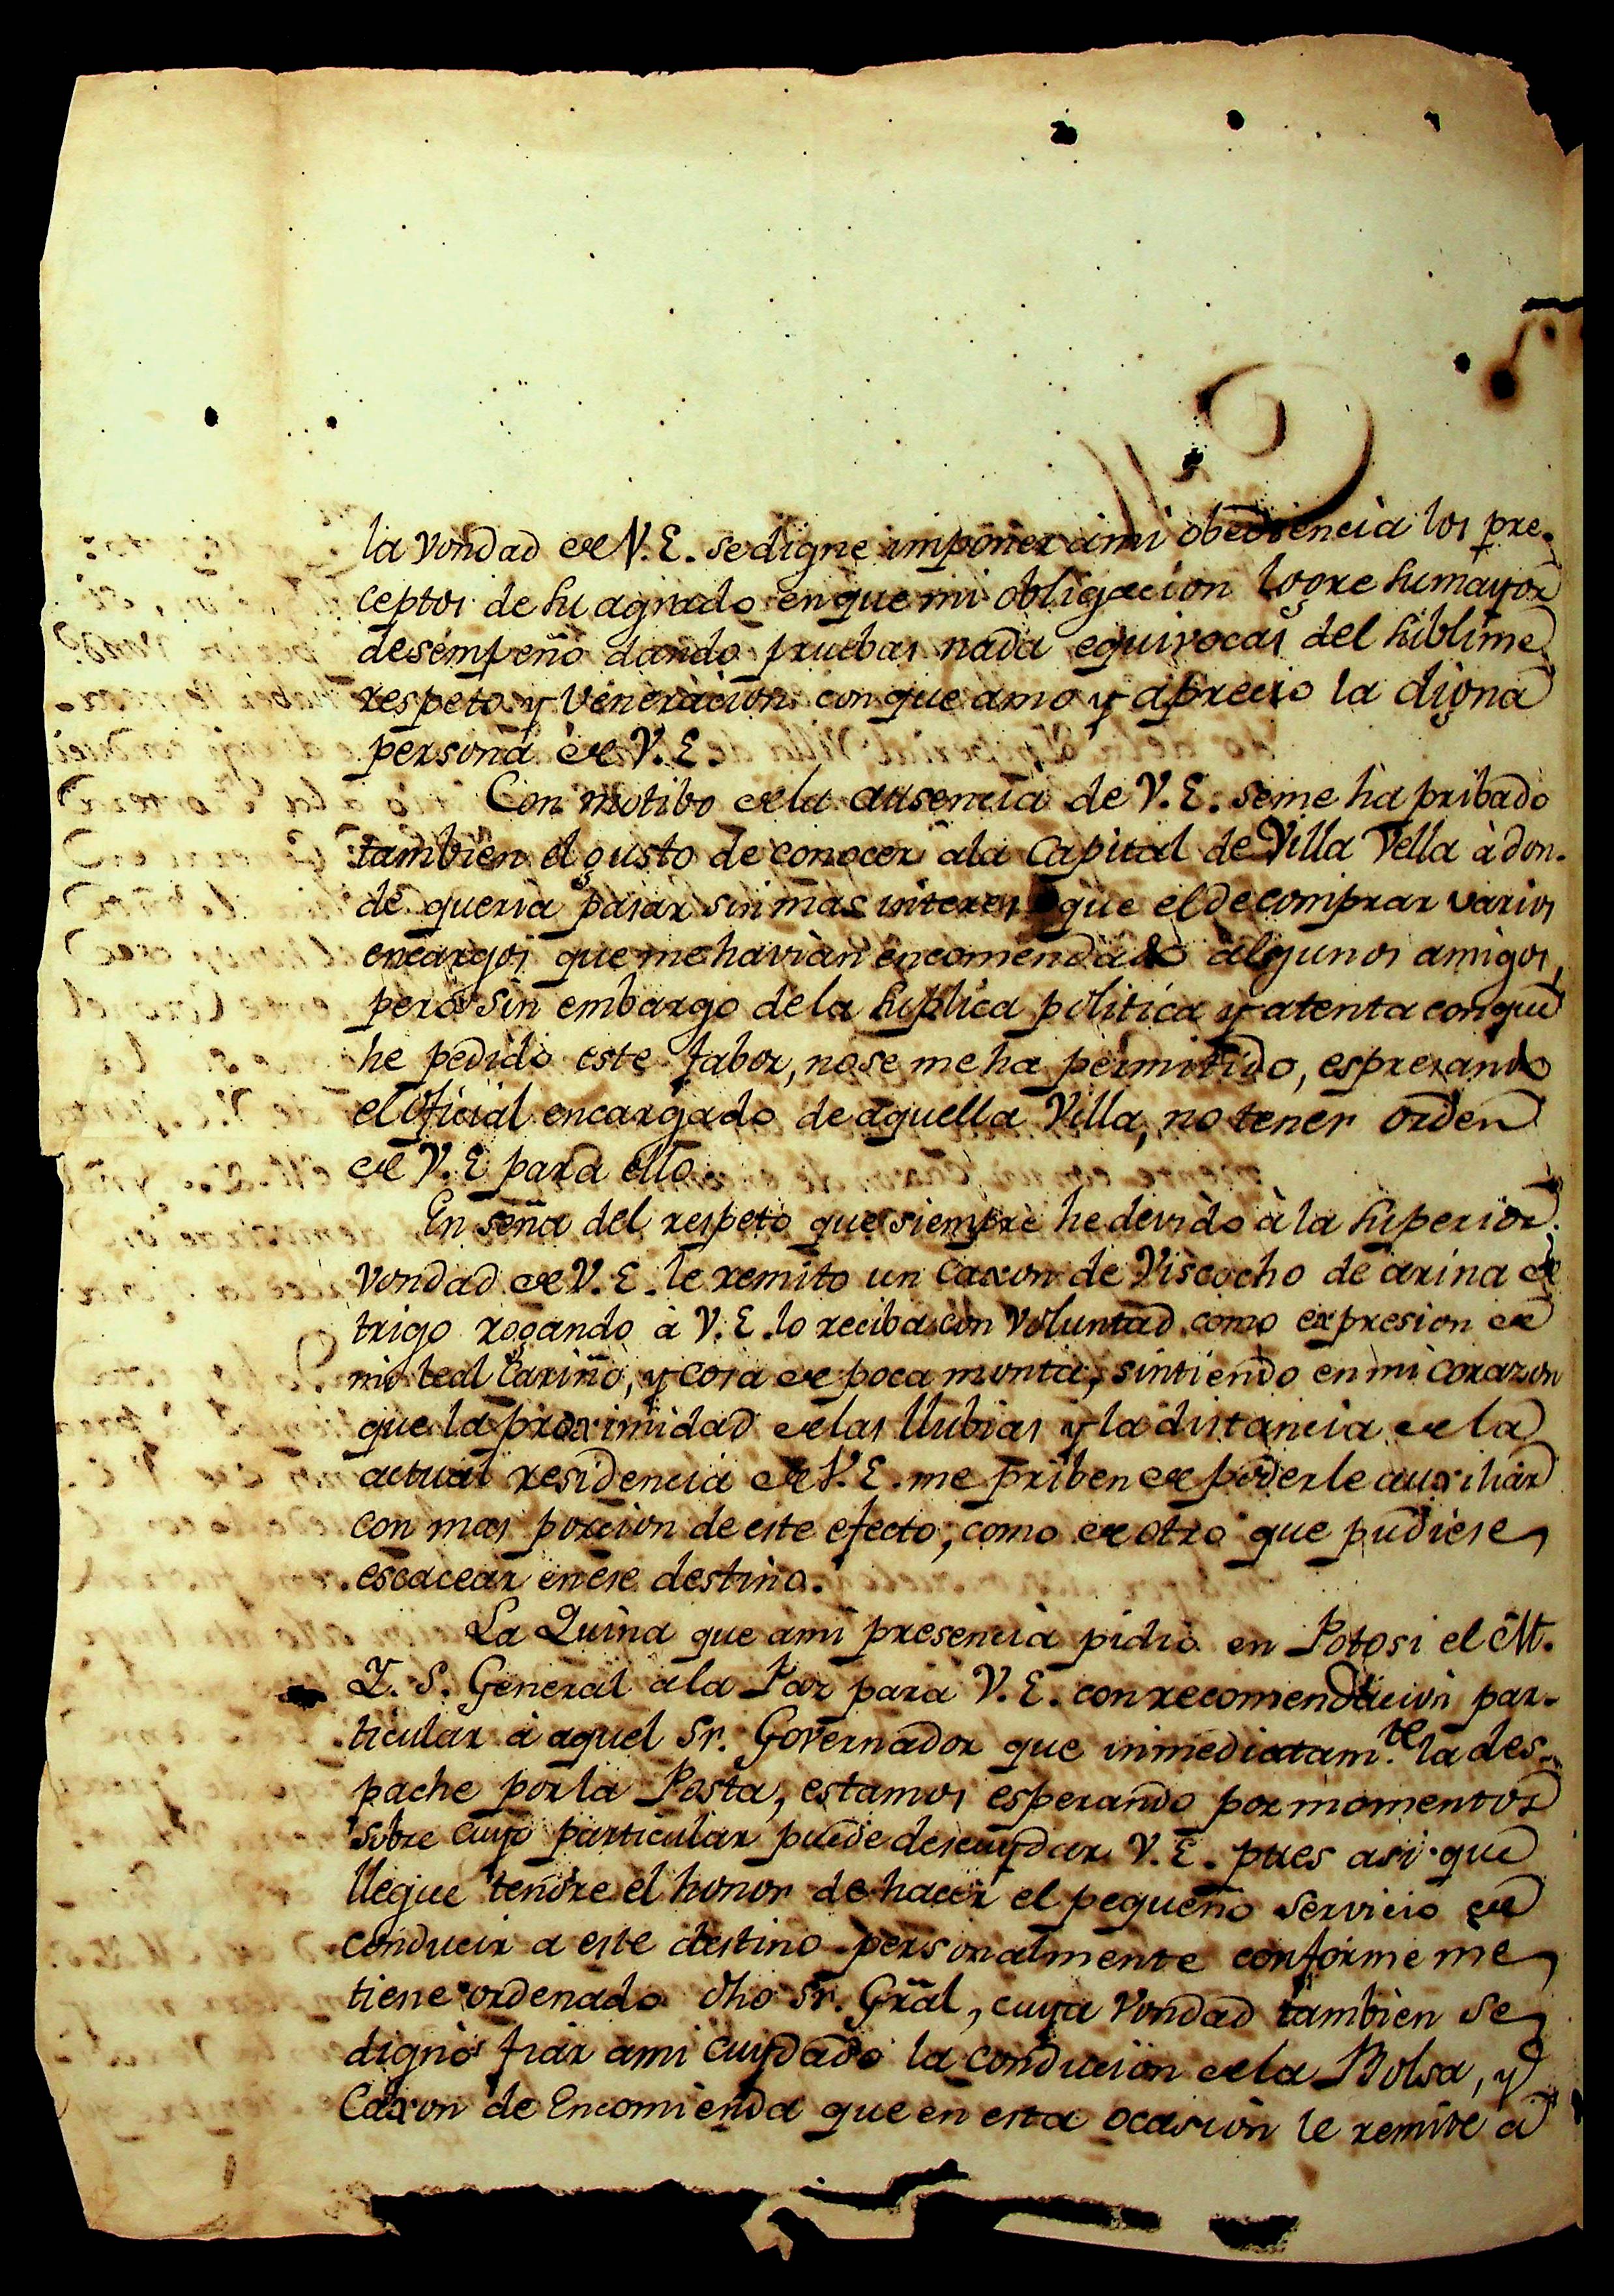 la vondad de V. E. se digne imponer à mi obediencia los pre-
ceptos de su agrado en que mi obligacion logre su mayor
desempeño dando pruebas nada equivocas del sublime
respeto y Veneracion con que amo y aprecio la digna
persona de V. E.
Con motibo de la ausencia de V. E. se me ha pribado
tambien el gusto de conocer a la Capital de Villa Vella à don-
de queria pasar sin mas interes que el de comprar varios
encargos que me havian encomendado algunos amigos,
pero sin embargo de la suplica politica y atenta con que
he pedido este fabor, no se me ha permitido, espresando
el Oficial encargado de aquella Villa, no tener orden
de V. E para ello.
En seña del respeto que siempre he devido à la superior
vondad de V. E. le remito un Caxon de Viscocho de arina de
trigo rogando à V. E. lo reciba con voluntad como expresion de
mi leal Cariño, y cosa de poca monta, sintiendo en mi corazon
que la proximidad de las llubias y la distancia de la
actual residencia de V. E. me priben de poderle auxiliar
con mas porcion de este efecto, como de otro que pudiese
escacear en ese destino.
La Quina que a mi presencia pidio en Potosi el M.
I. S. General a la Paz para V. E. con recomendacion par-
ticular à aquel Sr. Governador que inmediatam.te la des-
pache por la Posta, estamos esperando por momentos
sobre cuyo particular puede descuydar V. E. pues asi que
llegue tendre el honor de hacer el pequeño servicio de
conducir a este destino personalmente conforme me
tiene ordenado dho Sr. Gral, cuya vondad tambien se
dignò fiar a mi cuydado la conducion de la Bolsa, y
Caxon de Encomienda que en esta ocasion le remite a